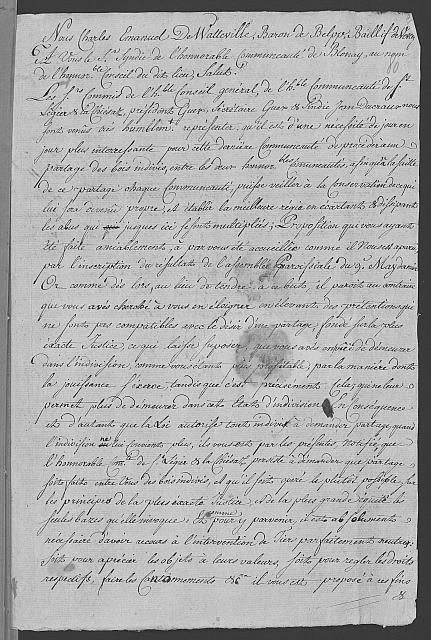 Nous Charles Emanuel De Watteville, Baron de Belp, Baillif de Vevey
Et Vous le Sr. Syndic de l'honorable Communeauté de Blonay, au nom
de l'honorble Conseil du dit lieu, Salut.
Les Srs Commis de l'hble Conseil general, de l'hble Communeauté de St
Légier & la Chiésaz, président Guex, Secrétaire Guex & Sindic Jean Ducraux nous
sont venus très humblemt représenter, qu'il est d'une nécessité de jour en
jour plus interressante pour cette derniere Communeauté de procéder au
partage des bois indivis, entre les deux honnorbles Communeautés, afin qu'à la suitte
de ce partage chaque Communeauté, puisse veiller à la Conservation de ce qui
lui sera devenu propre, et établir la meilleure régie en écartant & dissipants
les abus qui jusques ici se sont multipliés; Proposition qui vous ayant
été faite amiablement, a par vous été accueillie comme il Nous est aparu
par l'inscription du résultat de l'assemblée Paroissiale du 9e May dernier
Or comme dès lors, au lieu de tendre, à ce but, il paroit au contraire
que vous avés cherché à vous en éloigner, en élevant des prétentions qui
ne sont pas compatibles avec le désir d'une partage, fondé sur la plus
exacte Justice, ce qui laisse suposer que vous avés envie de demeurer
dans l'indivision, comme vous étant plus profitable, par la manière dont
la jouissance s'éxerce, tandis que c'est précisément Cela, qui ne leur
permet plus de demeurer dans cet état d'indivision; En Conséquence
et d'autant que la Loi autorise tout indivis à demander partage, quand
l'indivision ne lui convient plus, ils vous est par les présentes Notifié, que
l'honorable Comté. de St. Légier & la Chiésaz, persiste à demander que partage
soit fait entre Vous des bois indivis, et qu'il soit opéré le plutôt possible, sur
les principes de la plus éxacte Justice, et de la plus grande équité les
seules bazes qu'elle invoque; Et comme pour y parvenir, il est absolument
nécessaire d'avoir recours à l'intervention de Tiers parfaitement neutres,
soit pour aprécier les objèts à leurs valeurs, soit pour regler les droits
respectifs, faire les Cantonnements &ca il vous est proposé à ces fins
&